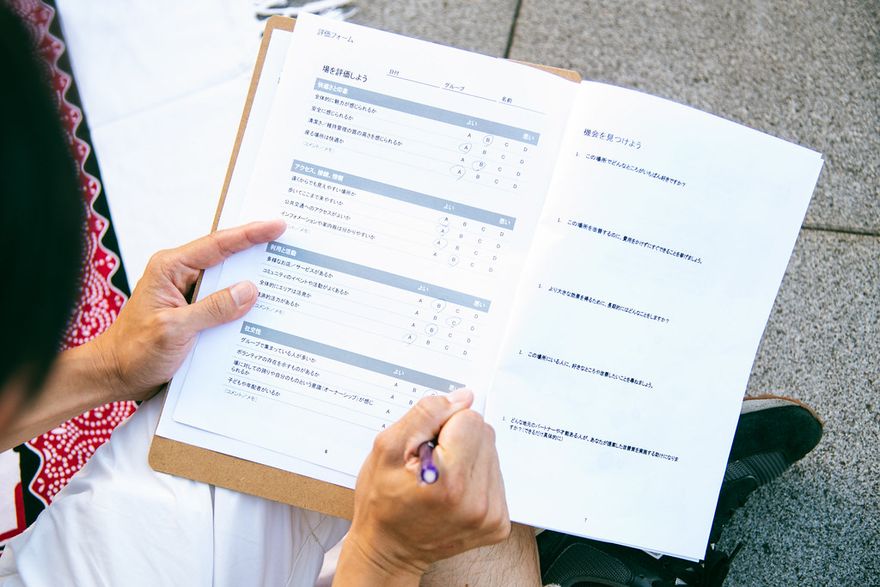 評価フォーム
場を評価しよう
日付
グループ
名前
快適さと印象 よい 悪い
全体的に魅力が感じられるか A B C D
安全に感じられるか A B C D
清潔さ／維持管理の質の高さを感じられるか A B C D
座る場所は快適か A B C D
（コメント／メモ）
アクセス、接続、移動 よい 悪い
遠くからでも見えやすい場所か A B C D
歩いてここまで来やすいか A B C D
公共交通へのアクセスがよいか A B C D
インフォメーションや案内板は分かりやすいか A B C D
（コメント／メモ）
利用と活動 よい 悪い
多様なお店／サービスがあるか A B C D
コミュニティのイベントや活動がよくあるか A B C D
全体的にエリアは活発か A B C D
経済的活力があるか A B C D
コメント／メモ）
社交性 よい 悪い
グループで集まっている人が多いか A B
ボランティアの存在を示すものがあるか A B
場に対しての誇りや自分のものという意識（オーナーシップ）が感じ
られるか A
子どもや年配者がいるか A
（コメント／メモ）
6
機会を見つけよう
1. この場所でどんなところがいちばん好きですか？
1. この場所を改善するのに、費用をかけずにすぐできることを挙げましょう。
1. より大きな効果を得るために、長期的にはどんなことをしますか？
1. この場所にいる人に、好きなところや改善したいことを尋ねましょう。
1. どんな地元のパートナーや才能ある人が、あなたが提案した改善要を実施する助けになりま
すか？（できるだけ具体的に）
7